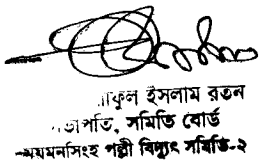 াফুল ইসলাম রতন
ভাপতি, সমিতি বোর্ড
ময়মনসিংহ পল্লী বিদ্যুৎ সমিতি-২